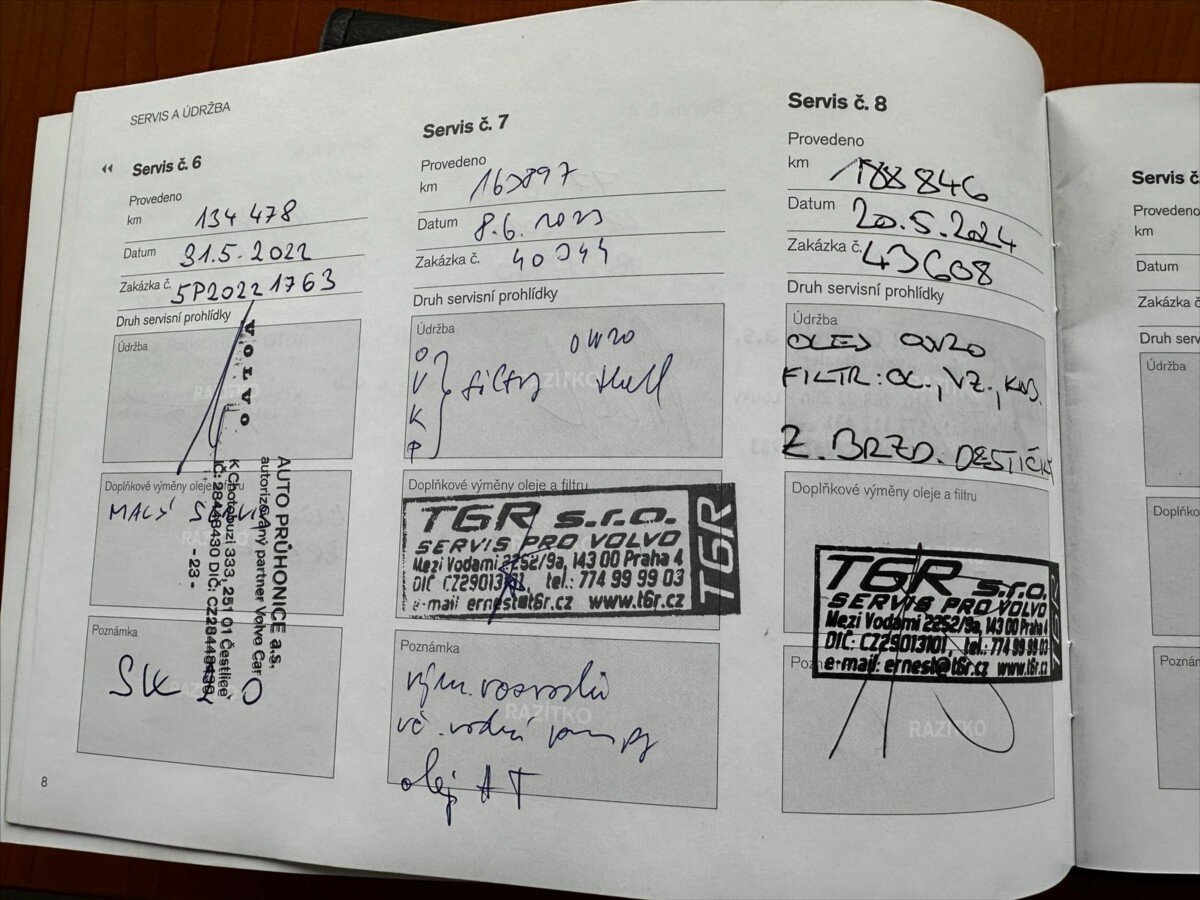 SERVIS A ÚDRŽBA
Servis č. 6
Provedeno
km 134 478
Datum 31.5.2022
Zakázka č. SP2022 1763
Druh servisní prohlídky
Údržba
VOLVO
AUTO PRŮHONICE a.s.
autorizovaný partner Volvo Car
K Chotobuzi 333, 251 01 Čestlice
IČ: 28448430 DIČ: CZ28448430
- 23 -
Doplňkové výměny oleje a filtru
MALÝ
Poznámka
SK
8
Servis č. 7
Provedeno
km 163897
Datum 8.6.2023
Zakázka č. 40344
Druh servisní prohlídky
Údržba
0W20
O
V
K
P
filtry Shell
Doplňkové výměny oleje a filtru
T6R s.r.o.
SERVIS PRO VOLVO
Mezi Vodami 2252/9a, 143 00 Praha 4
DIČ CZ29013101, tel.: 774 99 99 03
e-mail ernest@t6r.cz www.t6r.cz
T6R
Poznámka
vým. rozvodů
vč. vodní pumpy
olej AT
RAZÍTKO
Servis č. 8
Provedeno
km 188 846
Datum 20.5.2024
Zakázka č. 43608
Druh servisní prohlídky
Údržba
OLEJ 0W20
FILTR: OL., VZ., KAB.
Z. BRZD. DESTIČKY
Doplňkové výměny oleje a filtru
T6R s.r.o.
SERVIS PRO VOLVO
Mezi Vodami 2252/9a, 143 00 Praha 4
DIČ: CZ29013101, tel.: 774 99 99 03
e-mail: ernest@t6r.cz www.t6r.cz
T6R
Poz
RAZÍTKO
Servis č.
Provedeno
km
Datum
Zakázka č.
Druh servis
Údržba
Doplňko
Poznám